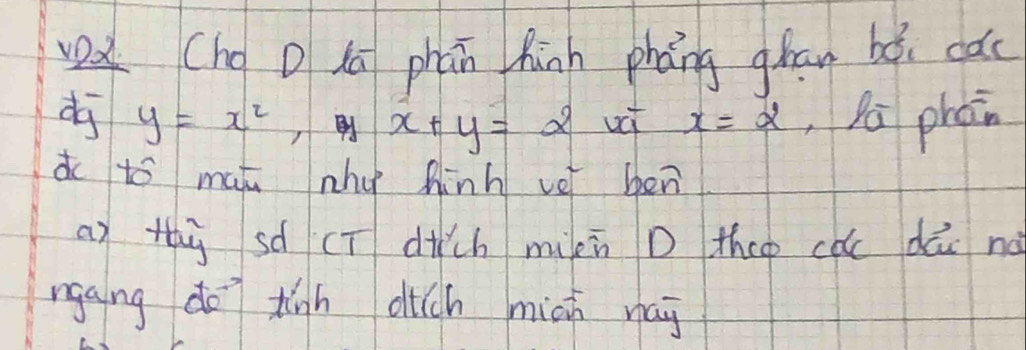 VD2 Cho D là phần hình phẳng ghạn bởi các
đg y = x², x + y = 2 và x = 2, là phần
đc tô màu như hình vẽ bên
a) Hãy sd CT dtích miền D theo các dấu
ngang để tính dtích miền này